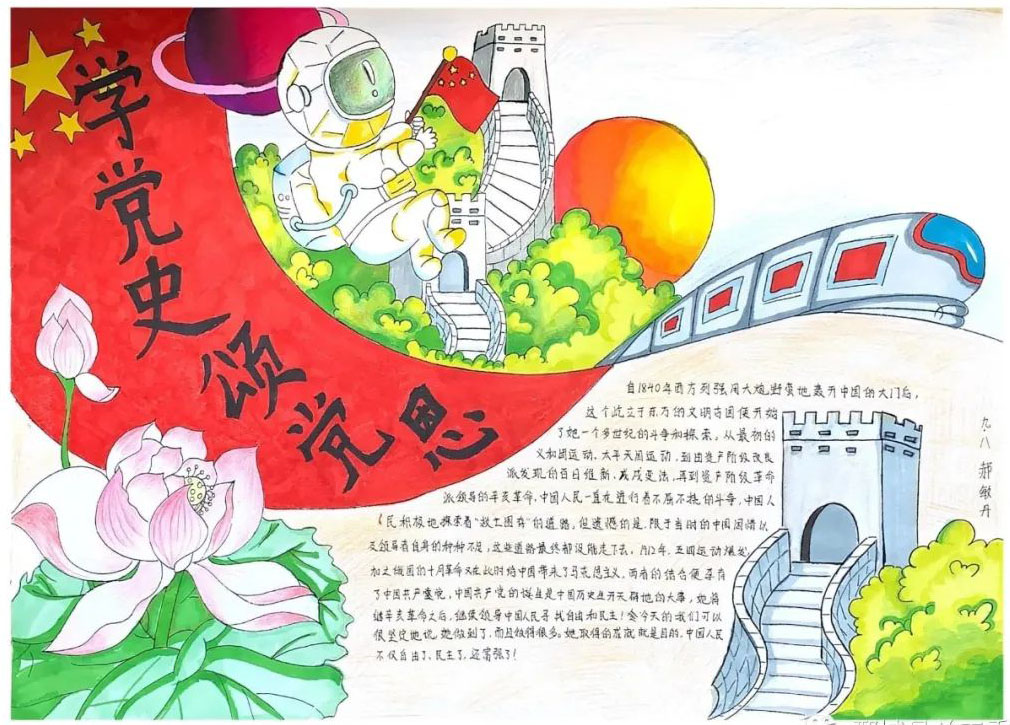 学党史
颂党恩
自1840年西方列强用大炮野蛮地轰开中国的大门后,
这个屹立于东方的文明古国便开始
了她一个多世纪的斗争和探索。从最初的
义和团运动、太平天国运动,到由资产阶级改良
派发现的百日维新、戊戌变法,再到资产阶级革命
派领导的辛亥革命,中国人民一直在进行着不屈不挠的斗争,中国人
民积极地探索着“救亡图存”的道路。但遗憾的是,限于当时的中国国情以
及领导者自身的种种不足,这些道路最终都没能走下去。1912年,五四运动爆发
加之俄国的十月革命又在此时给中国带来了马克思主义。两者的结合便孕育
了中国共产党,中国共产党的诞生是中国历史上开天辟地的大事,她将
继辛亥革命之后,继续领导中国人民寻找自由和民主!令今天的我们可以
很坚定地说,她做到了,而且做得很多,她取得的成就就是目的。中国人民
不仅自由了、民主了,还富强了!
九·八 郝敏丹